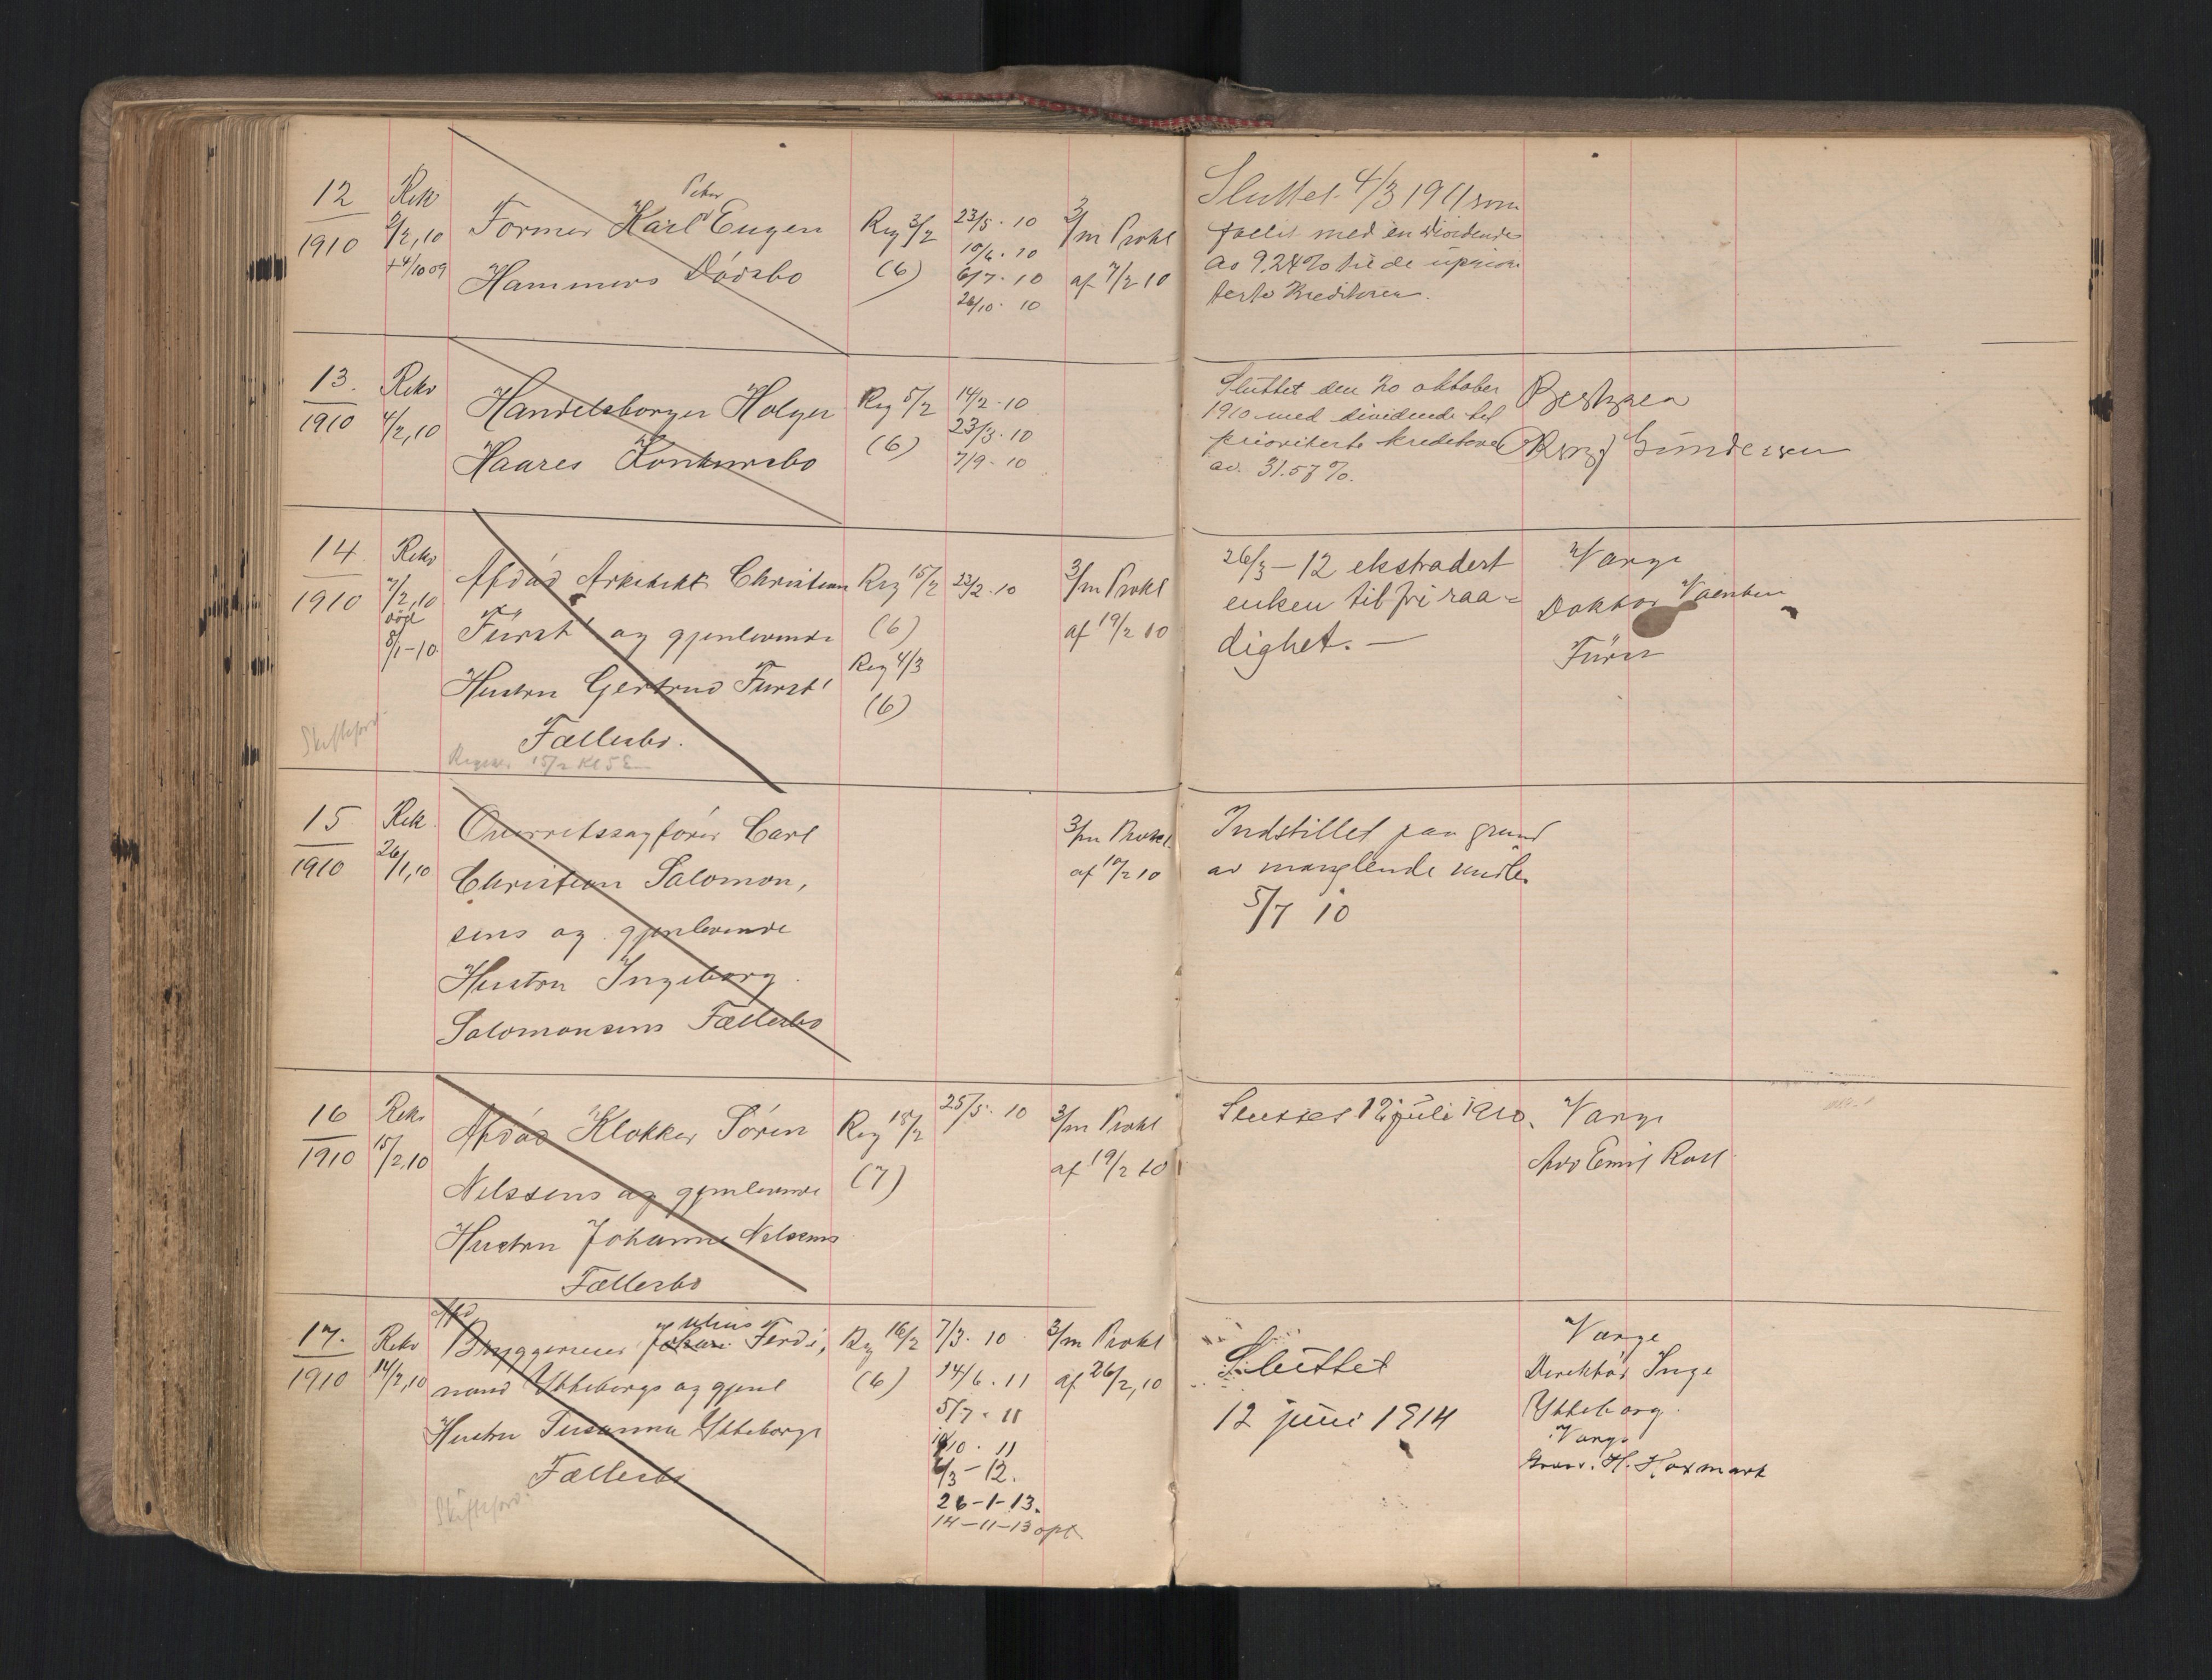 12
1910
Rek
2/2,10
+4/10 09
Former Karl Peter Eugen
Hammers Dødsbo
Reg 3/2
(6)
23/5. 10
10/6. 10
6/7. 10
26/10. 10
3/m Prokl
af 7/2 10
Sluttet 4/3 1911 som
fallit med en dividende
av 9.24% til de uprior
terte Kreditorer.
13.
1910
Rekv
4/2,10
Handelsborger Holger
Haares Konkursbo
Reg 5/2
(6)
14/2. 10
23/3. 10
7/9. 10
Sluttet den 20 oktober
1910 med dividende til
prioriterte kreditorer
av. 31.57 %.
Bestyrer
Gundersen
14
1910
Rekv
7/2,10
død
8/1-10
Afdød Arkitekt Christian
Fürst' og gjenlevende
Hustru Gertrud Fürst'
Fællesbo.
Reg 15/2
(6)
Reg 4/3
(6)
23/2. 10
3/m Prokl
af 19/2 10
26/3 – 12 ekstradert
enken til fri raa=
dighet. —
Værge
Doktor Valentin
Fürst
Skiftefor.
15/2 Kl 5 E
15
1910
Rek.
26/1,10
Overretssagfører Carl
Christian Salomon,
sens og gjenlevende
Hustru Ingeborg
Salomonsens Fællesbo
3/m Prokl.
af 10/2 10
Indstillet paa grund
av manglende midler
5/7 10
16
1910
Rekv
15/2,10
Afdød Klokker Søren
Nelssens og gjenlevende
Hustru Johanne Nelssens
Fællesbo
Reg 18/2
(7)
25/5. 10
3/m Prokl
af 19/2 10
Sluttet 12 juli 1910.
Værge
Adv Emil Roll
17.
1910
Rekv
14/2,10
Afd
Bryggerieier Johan Julius Ferdi,
nand Ytteborgs og gjenl
Hustru Susanna Ytteborgs
Fællesbo
Skiftefor.
Reg 16/2
(6)
7/3. 10
14/6. 11
5/7. 11
10/10. 11
6/3 – 12.
26-1-13.
14-11-13 opt
3/m Prokl
af 26/2,10
Sluttet
12 juni 1914
Værge
Direktør Inge
Ytteborg.
Værge
H. Foxmark